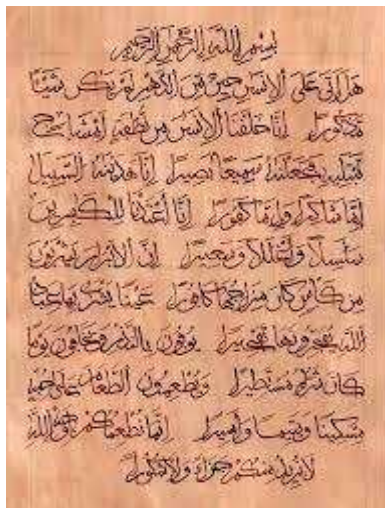 بسم الله الرحمن الرحيم
هل أتى على الإنسن حين من الدهر لم يكن شيئا
مذكورا إنا خلقنا الإنسن من نطفة أمشاج
نبتليه فجعلنه سميعا بصيرا إنا هدينه السبيل
إما شاكرا وإما كفورا إنا أعتدنا للكفرين
سلسلا وأغللا وسعيرا إن الأبرار يشربون
من كأس كان مزاجها كافورا عينا يشرب بها عباد
الله يفجرونها تفجيرا يوفون بالنذر ويخافون يوما
كان شره مستطيرا ويطعمون الطعام على حبه
مسكينا ويتيما وأسيرا إنما نطعمكم لوجه الله
لا نريد منكم جزاء ولا شكورا